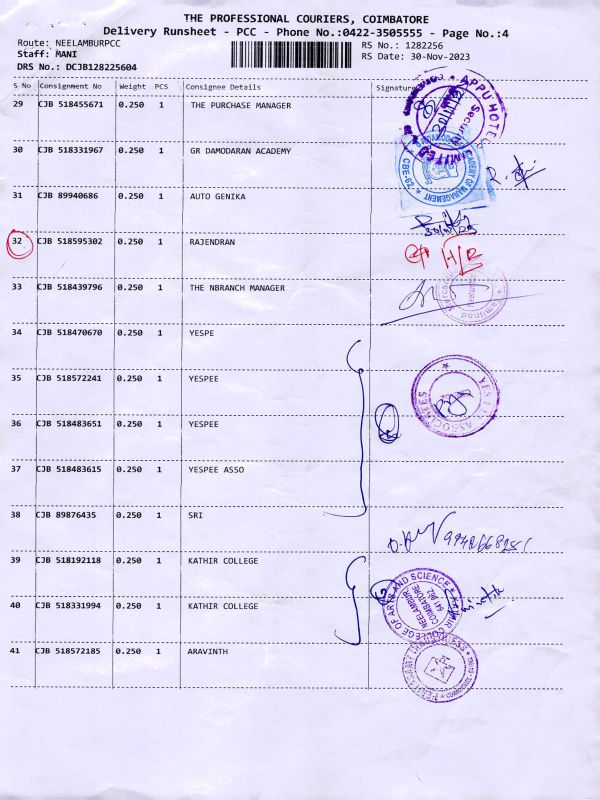 THE PROFESSIONAL COURIERS, COIMBATORE
Delivery Runsheet - PCC - Phone No.:0422-3505555 - Page No.:4
Route: NEELAMBURPCC
Staff: MANI
DRS No.: DCJB128225604
RS No.: 1282256
RS Date: 30-Nov-2023
S No Consignment No Weight PCS Consignee Details Signature
29 CJB 518455671 0.250 1 THE PURCHASE MANAGER
30 CJB 518331967 0.250 1 GR DAMODARAN ACADEMY
31 CJB 89940686 0.250 1 AUTO GENIKA
32 CJB 518595302 0.250 1 RAJENDRAN
33 CJB 518439796 0.250 1 THE NBRANCH MANAGER
34 CJB 518470670 0.250 1 YESPE
35 CJB 518572241 0.250 1 YESPEE
YESPEE ASSOCIATES
36 CJB 518483651 0.250 1 YESPEE
37 CJB 518483615 0.250 1 YESPEE ASSO
38 CJB 89876435 0.250 1 SRI
39 CJB 518192118 0.250 1 KATHIR COLLEGE
40 CJB 518331994 0.250 1 KATHIR COLLEGE
KATHIR COLLEGE OF ARTS AND SCIENCE
NEELAMBUR
COIMBATORE
641 062
41 CJB 518572185 0.250 1 ARAVINTH